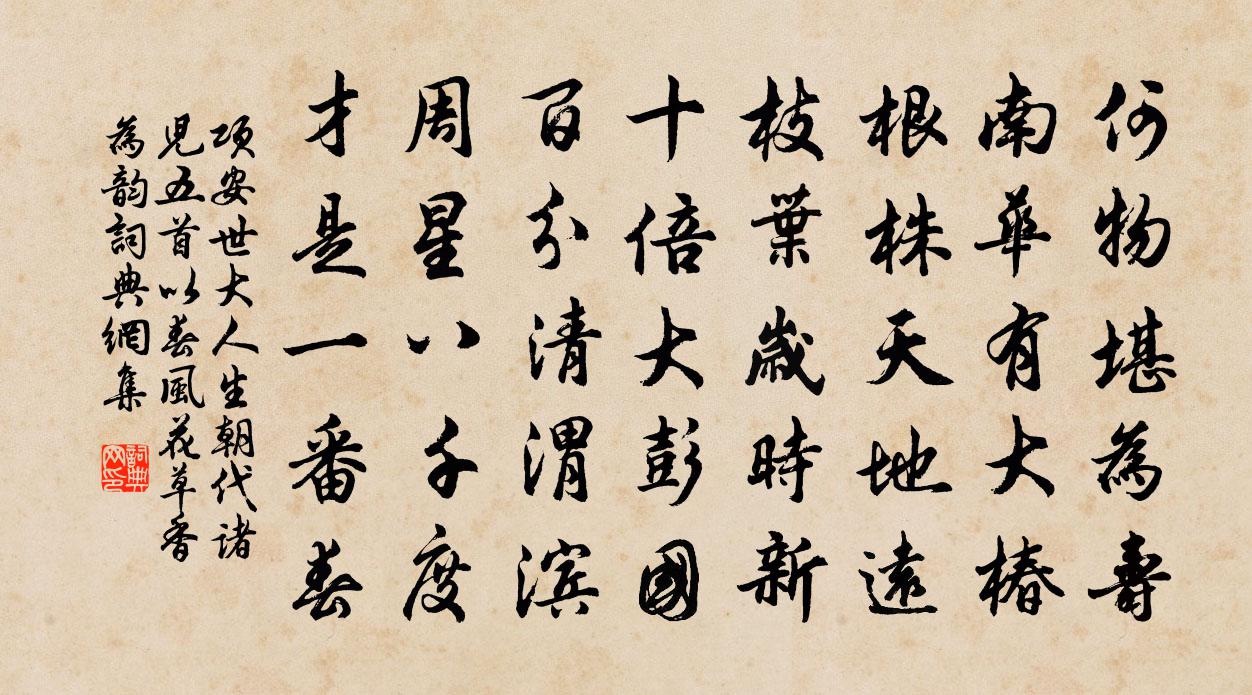 何物堪為壽
南華有大椿
根株天地遠
枝葉歲時新
十倍大彭國
百分清渭滨
周星八千度
才是一番春
项安世大人生朝代诸
児五首以春風花草香
為韵詞典網集
詞典
网印